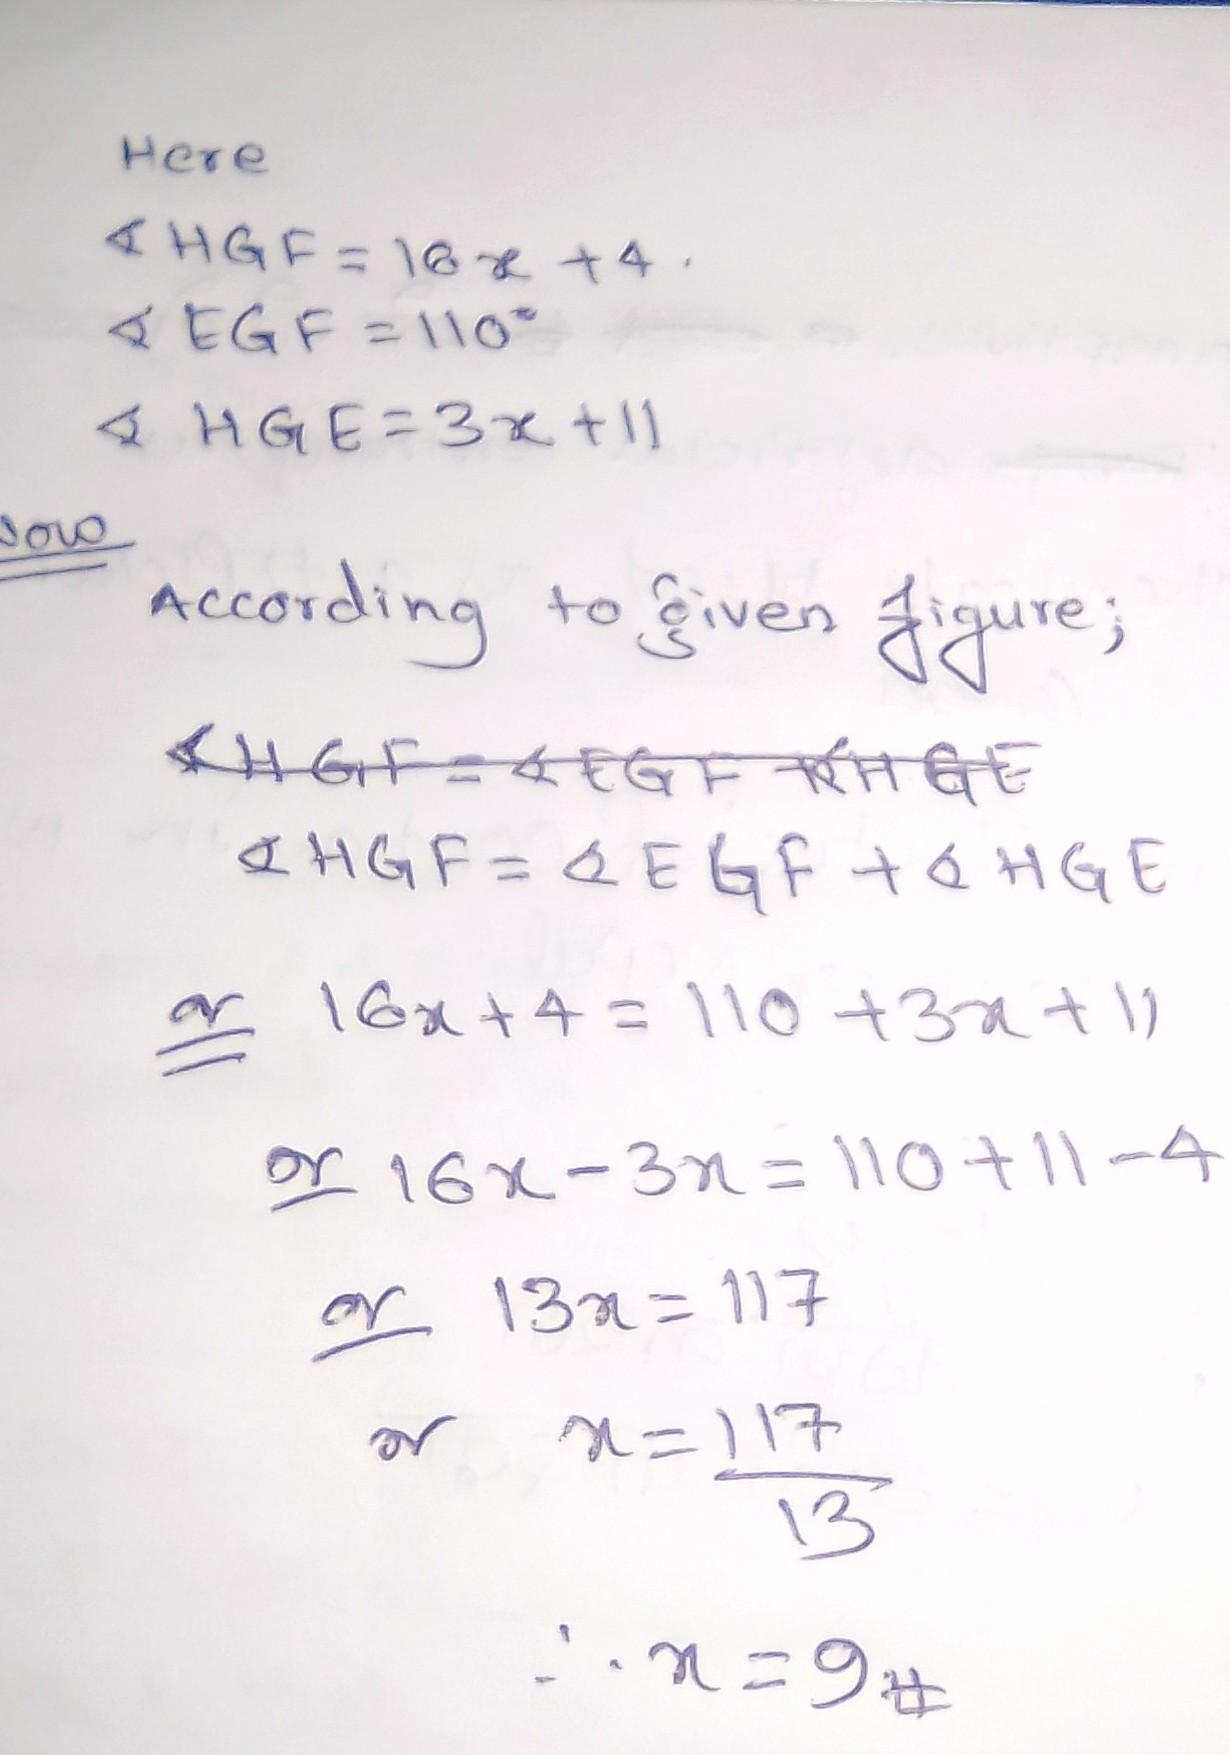 Here
∡ HGF = 16x + 4.
∡ EGF = 110°
∡ HGE = 3x + 11
Now
According to given figure;
∡HGF = ∡EGF + ∡HGE
∡HGF = ∡EGF + ∡HGE
or 16x + 4 = 110 + 3x + 11
or 16x - 3x = 110 + 11 - 4
or 13x = 117
or x = 117
13
∴ x = 9 #